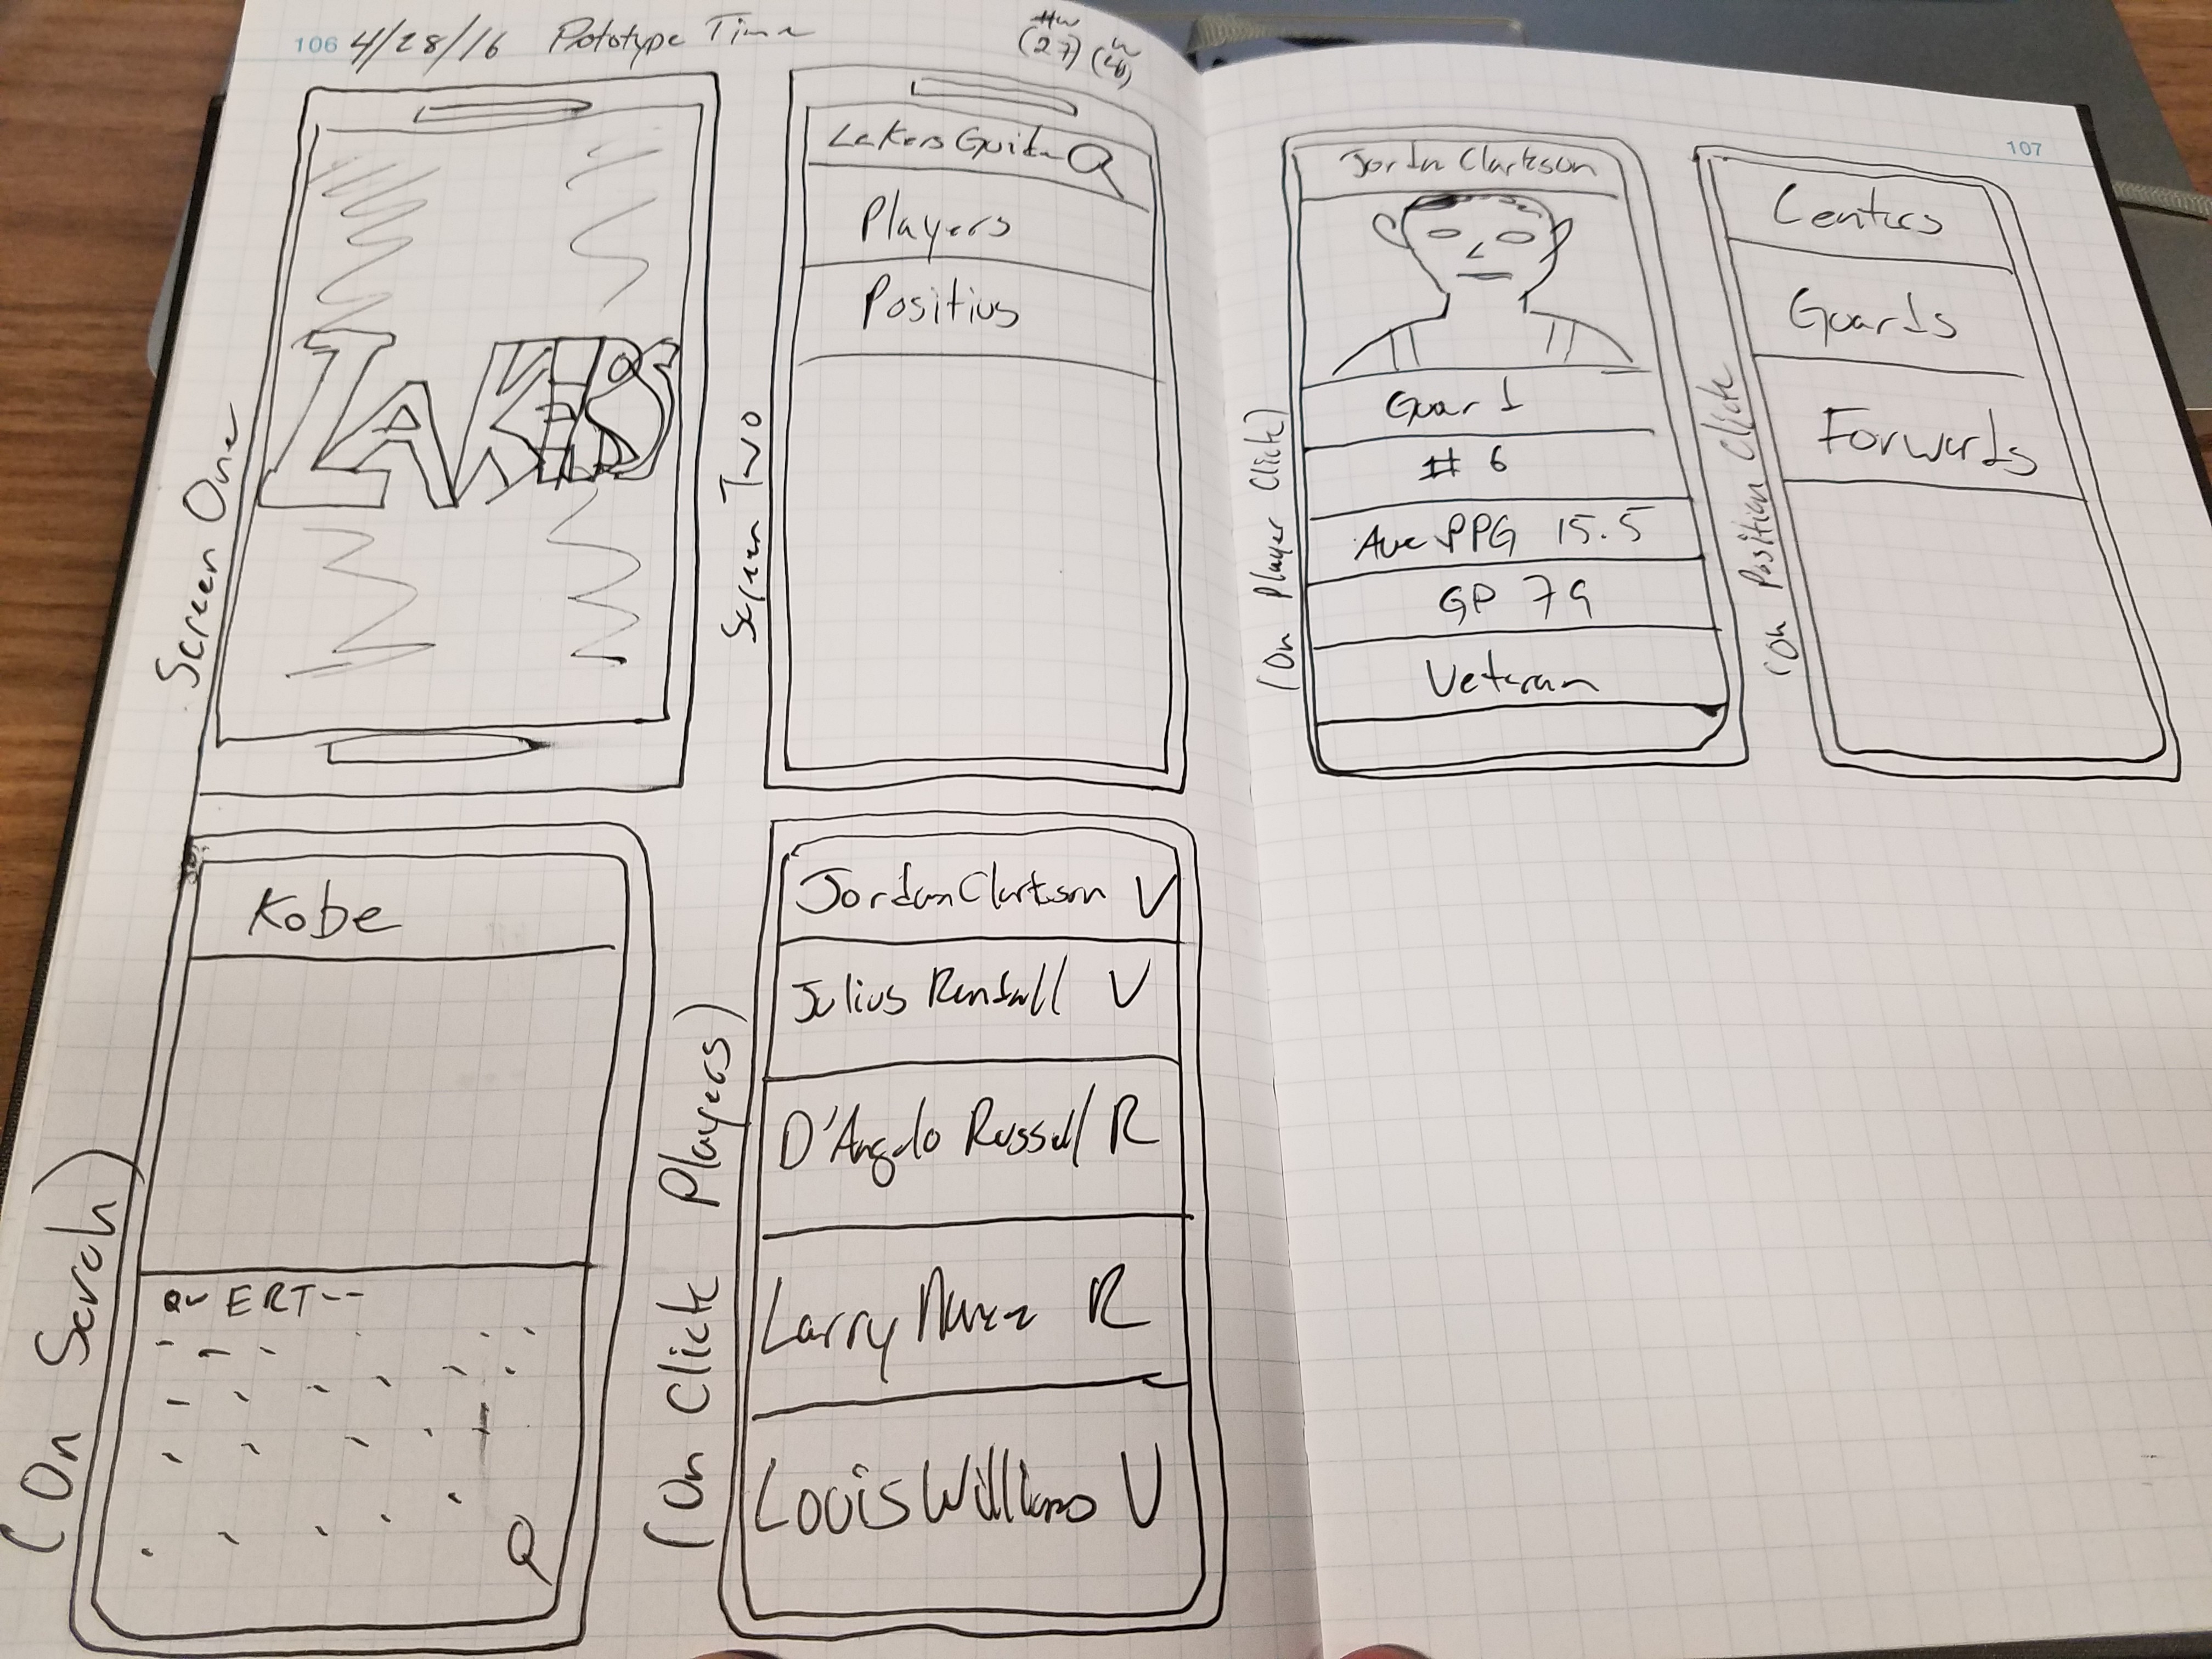 106 4/28/16 Pototype Time
HW
(27)
Screen One
LAKERS
Screen Two
Lakers Guide
Players
Positins
(On Serch)
Kobe
QWERT--
(On Click Players)
Jordan Clarkson V
Julius Randall V
D'Angelo Russell R
Larry Nance R
Louis Williams V
107
(On Player Click)
Jordan Clarkson
Guard
# 6
Ave PPG 15.5
GP 79
Veteran
(On Position Click
Centers
Guards
Forwards